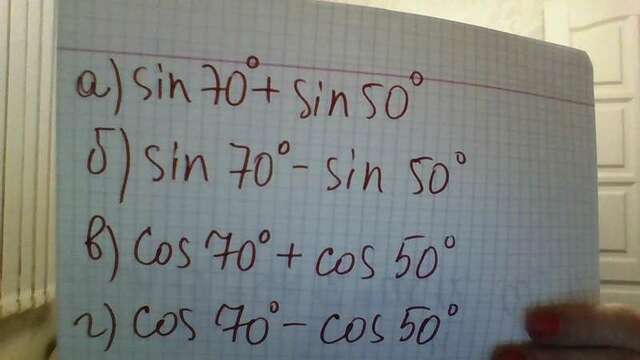 а) sin 70° + sin 50°
б) sin 70° - sin 50°
в) cos 70° + cos 50°
г) cos 70° - cos 50°